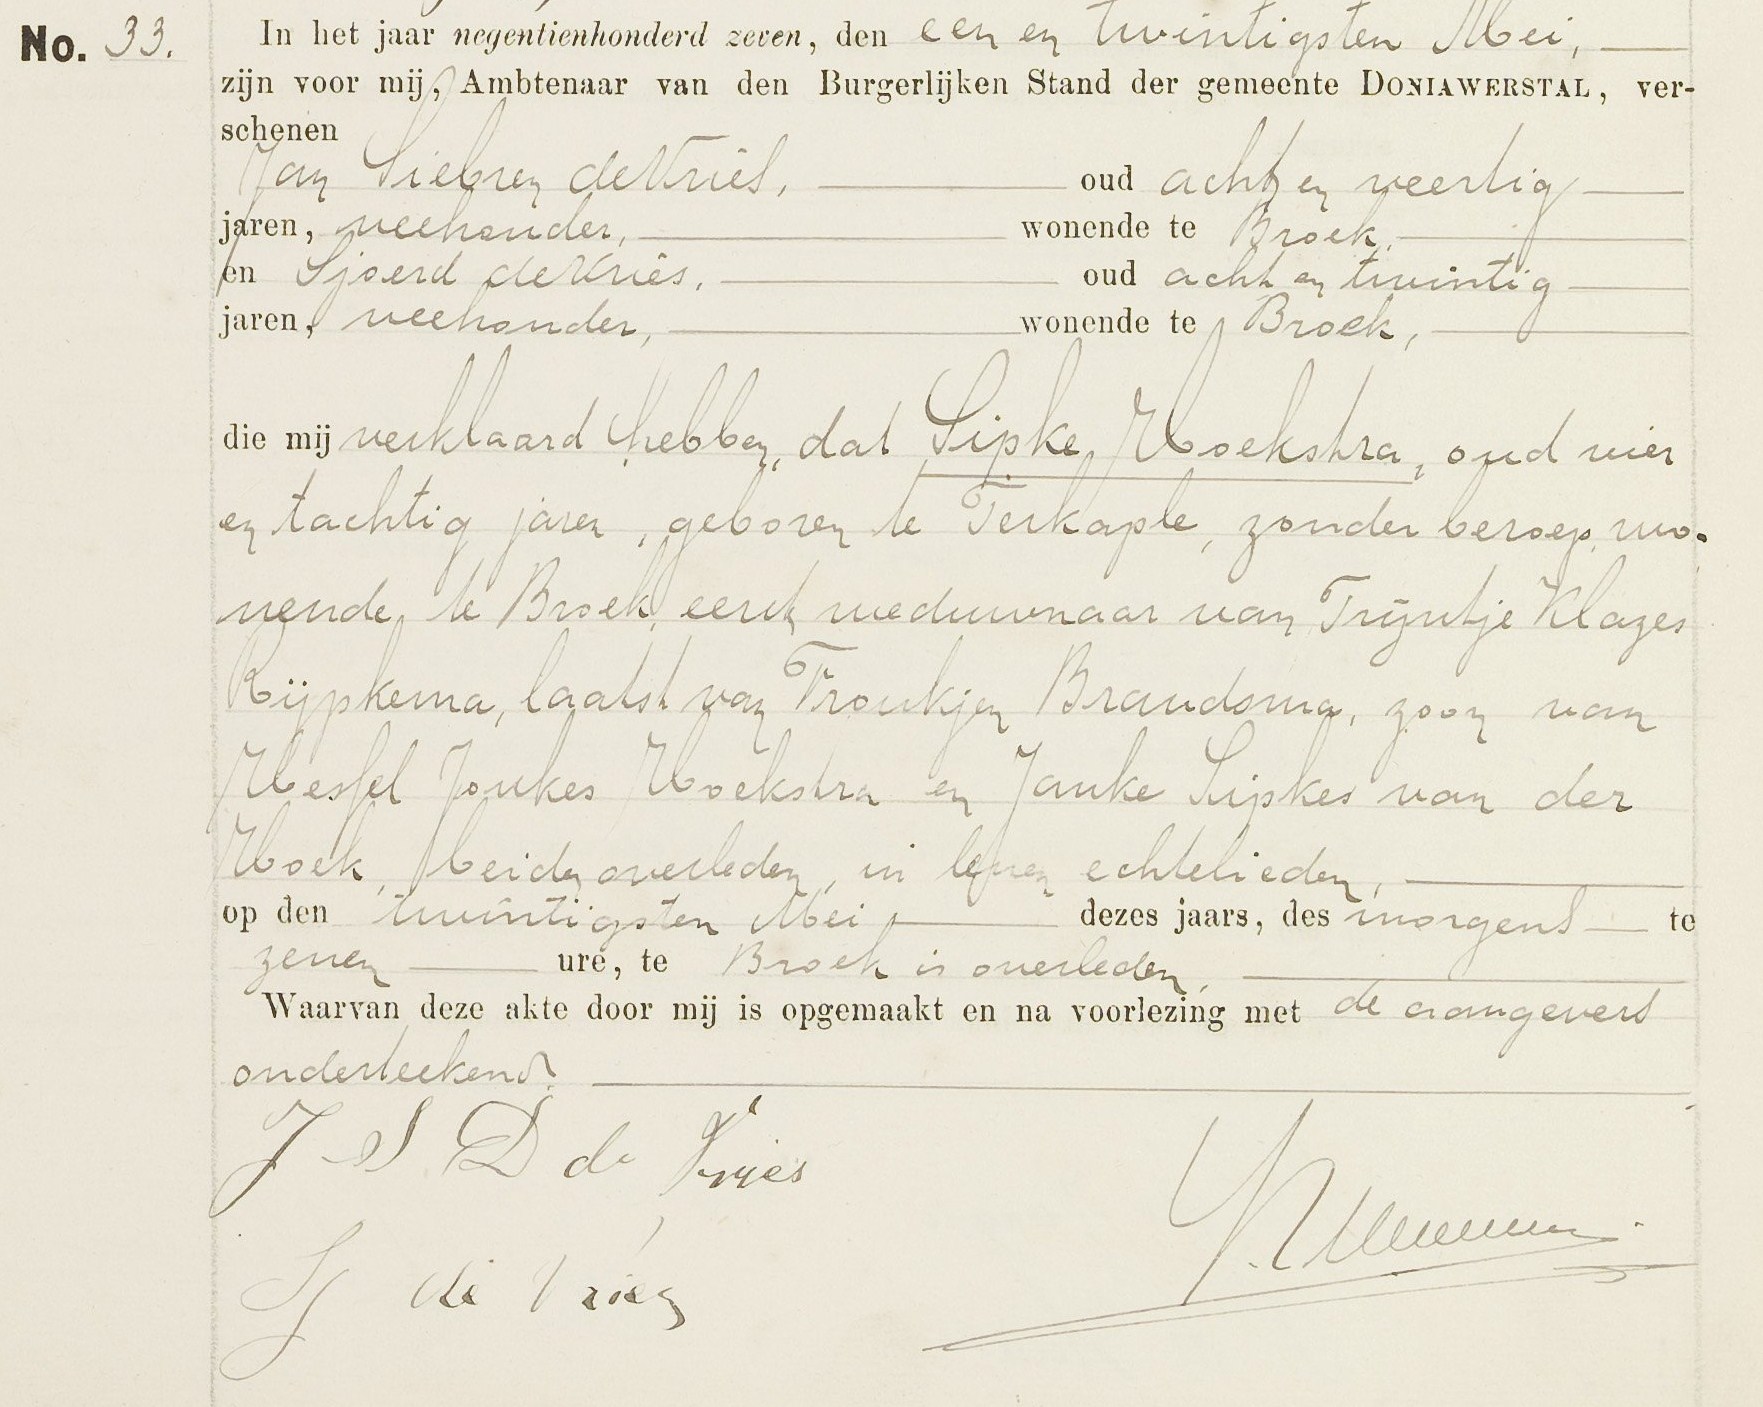 No. 33.
In het jaar negentienhonderd zeven, den een en twintigsten Mei,
zijn voor mij, Ambtenaar van den Burgerlijken Stand der gemeente DONIAWERSTAL, ver-
schenen
Jan Siebren de Vries, oud acht en veertig
jaren, veehouder, wonende te Broek,
en Sjoerd de Vries, oud acht en twintig
jaren, veehouder, wonende te Broek,
die mij verklaard hebben, dat Sipke Hoekstra, oud vier
en tachtig jaren, geboren te Terkaple, zonder beroep, wo-
nende te Broek, eerst weduwnaar van Trijntje Klazes
Rijpkema, laatst van Froukjen Brandsma, zoon van
Wessel Joukes Hoekstra en Janke Sipkes van der
Hoek, beiden overleden, in leven echtelieden,
op den twintigsten Mei dezes jaars, des morgens te
zeven ure, te Broek is overleden,
Waarvan deze akte door mij is opgemaakt en na voorlezing met de aangevers
onderteekend.
J S D de Vries
S de Vries